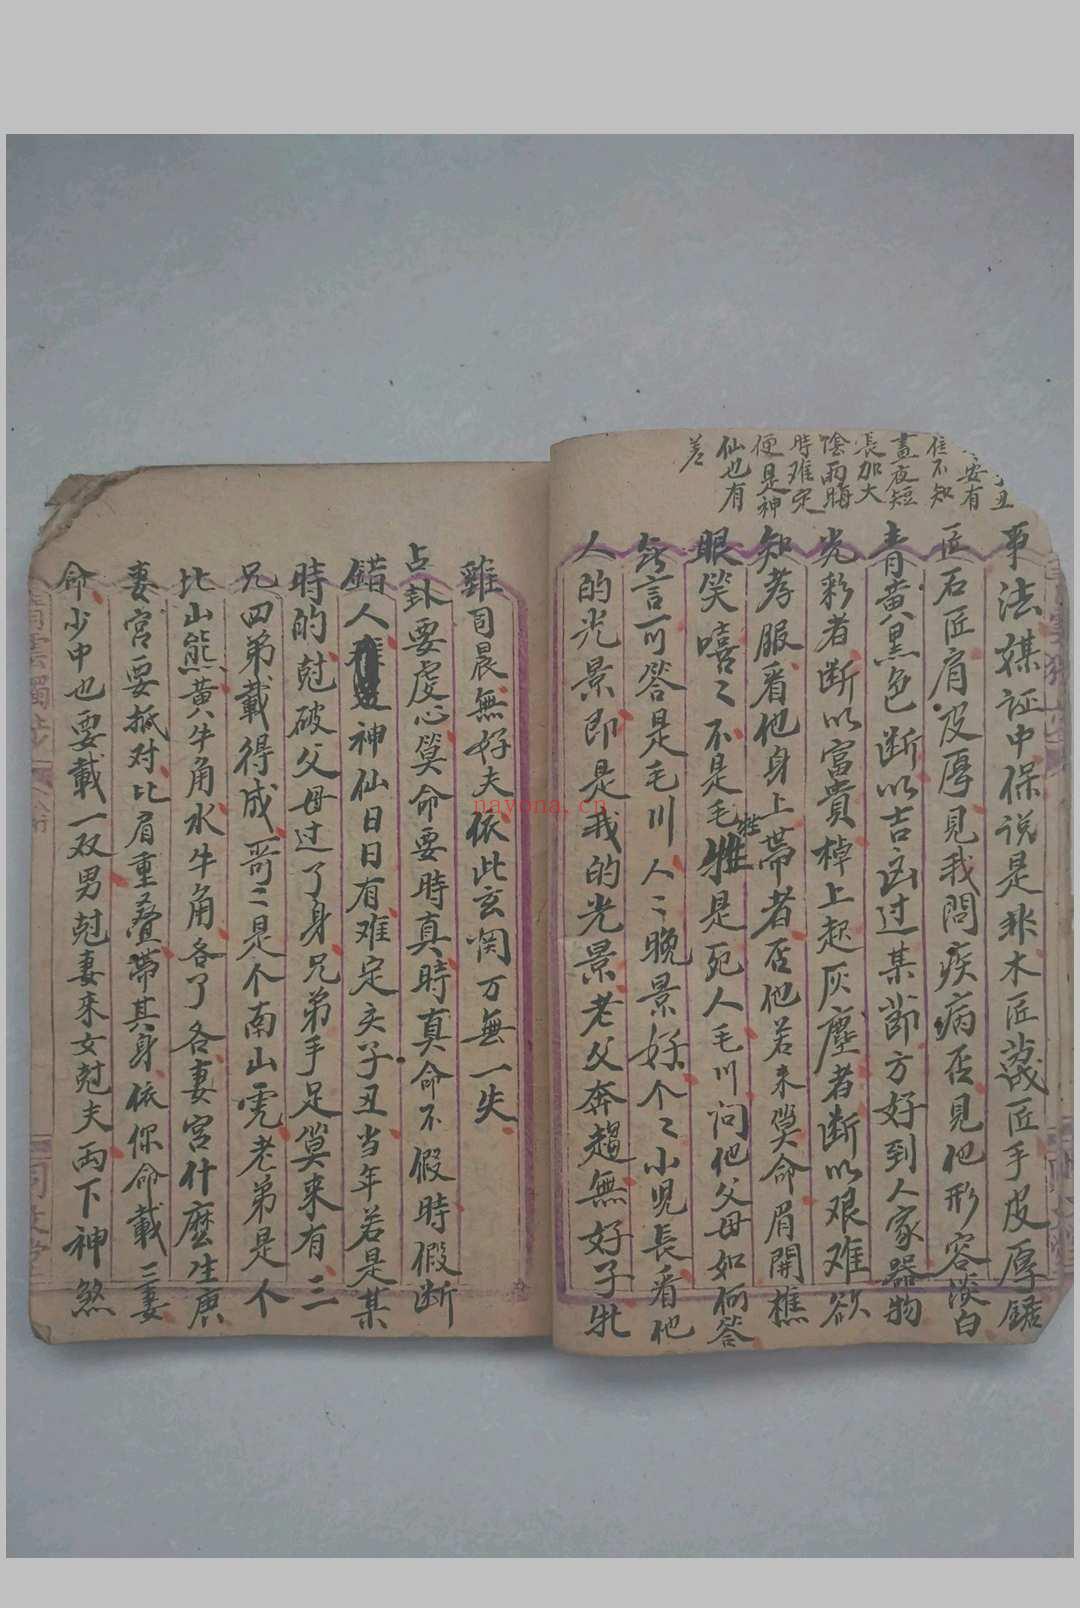 丑
安有
住不知
晝夜短
長加大
陰雨晦
時难定
便是神
仙也有
差
事法媒証中保说是非木匠蔑匠手皮厚鋸
匠石匠肩皮厚見我問疾病否見他形容淡白
青黄黑色断以吉凶过某節方好到人家器物
光彩者断以富貴棹上起灰塵者断以艰难欲
知孝服看他身上帶者否他若来算命眉開樵
眼笑嘻〻不是毛牲是死人毛川问他父母如何答
牲
言可答是毛川人〻晚景好个〻小児長看他
人的光景即是我的光景老父奔趨無好子牝
雞司晨無好夫依此玄関万無一失
占卦要虔心算命要時真時真命不假時假断
錯人神仙日日有难定亥子丑当年若是某
時的尅破父母过了身兄弟手足算来有三
兄四弟載得成哥二是个南山虎老弟是个
比山熊黄牛角水牛角各了各妻宮什麽生庚
妻宮要抵对比肩重叠帶其身依你命載三妻
命少中也要載一双男尅妻来女尅夫両下神煞
nayona.cn